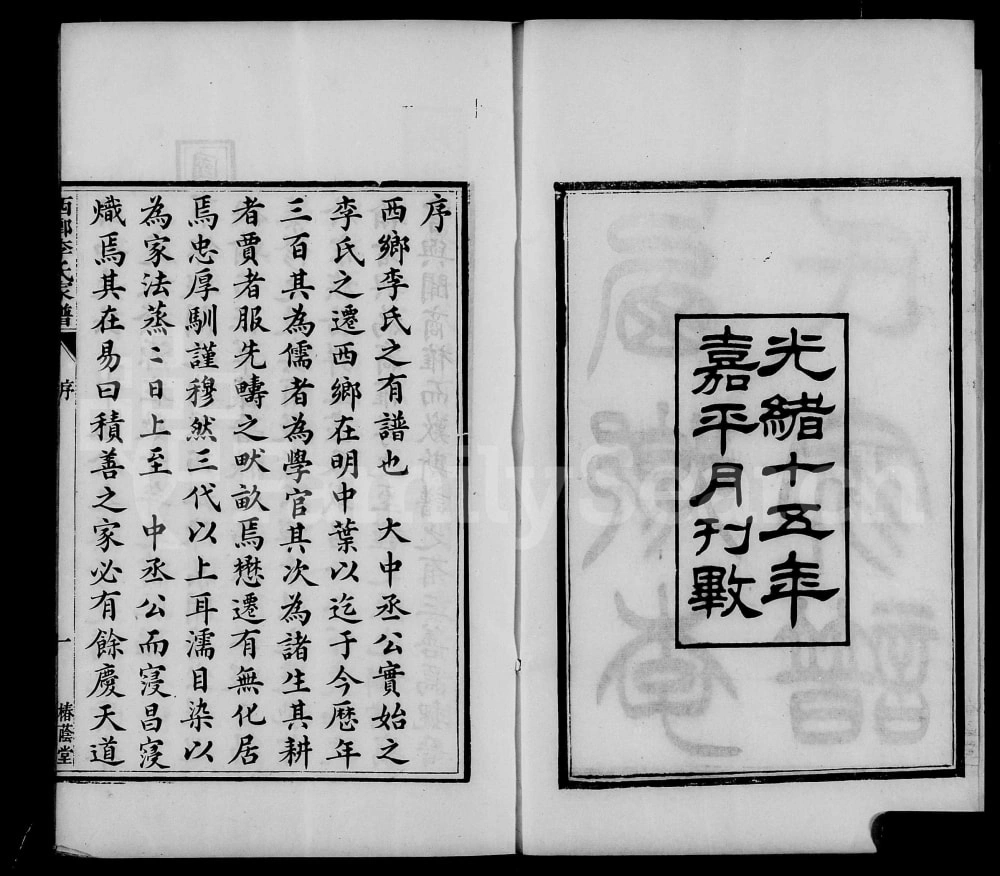 光緒十五年
嘉平月刊斁
序
西鄉李氏之有譜也　大中丞公實始之
李氏之遷西鄉在明中葉以迄于今歷年
三百其為儒者為學官其次為諸生其耕
者賈者服先疇之畎畝焉懋遷有無化居
焉忠厚馴謹穆然三代以上耳濡目染以
為家法蒸〻日上至　中丞公而寖昌寖
熾焉其在易曰積善之家必有餘慶天道
西鄉李氏家譜
序
一
椿蔭堂
familysearch